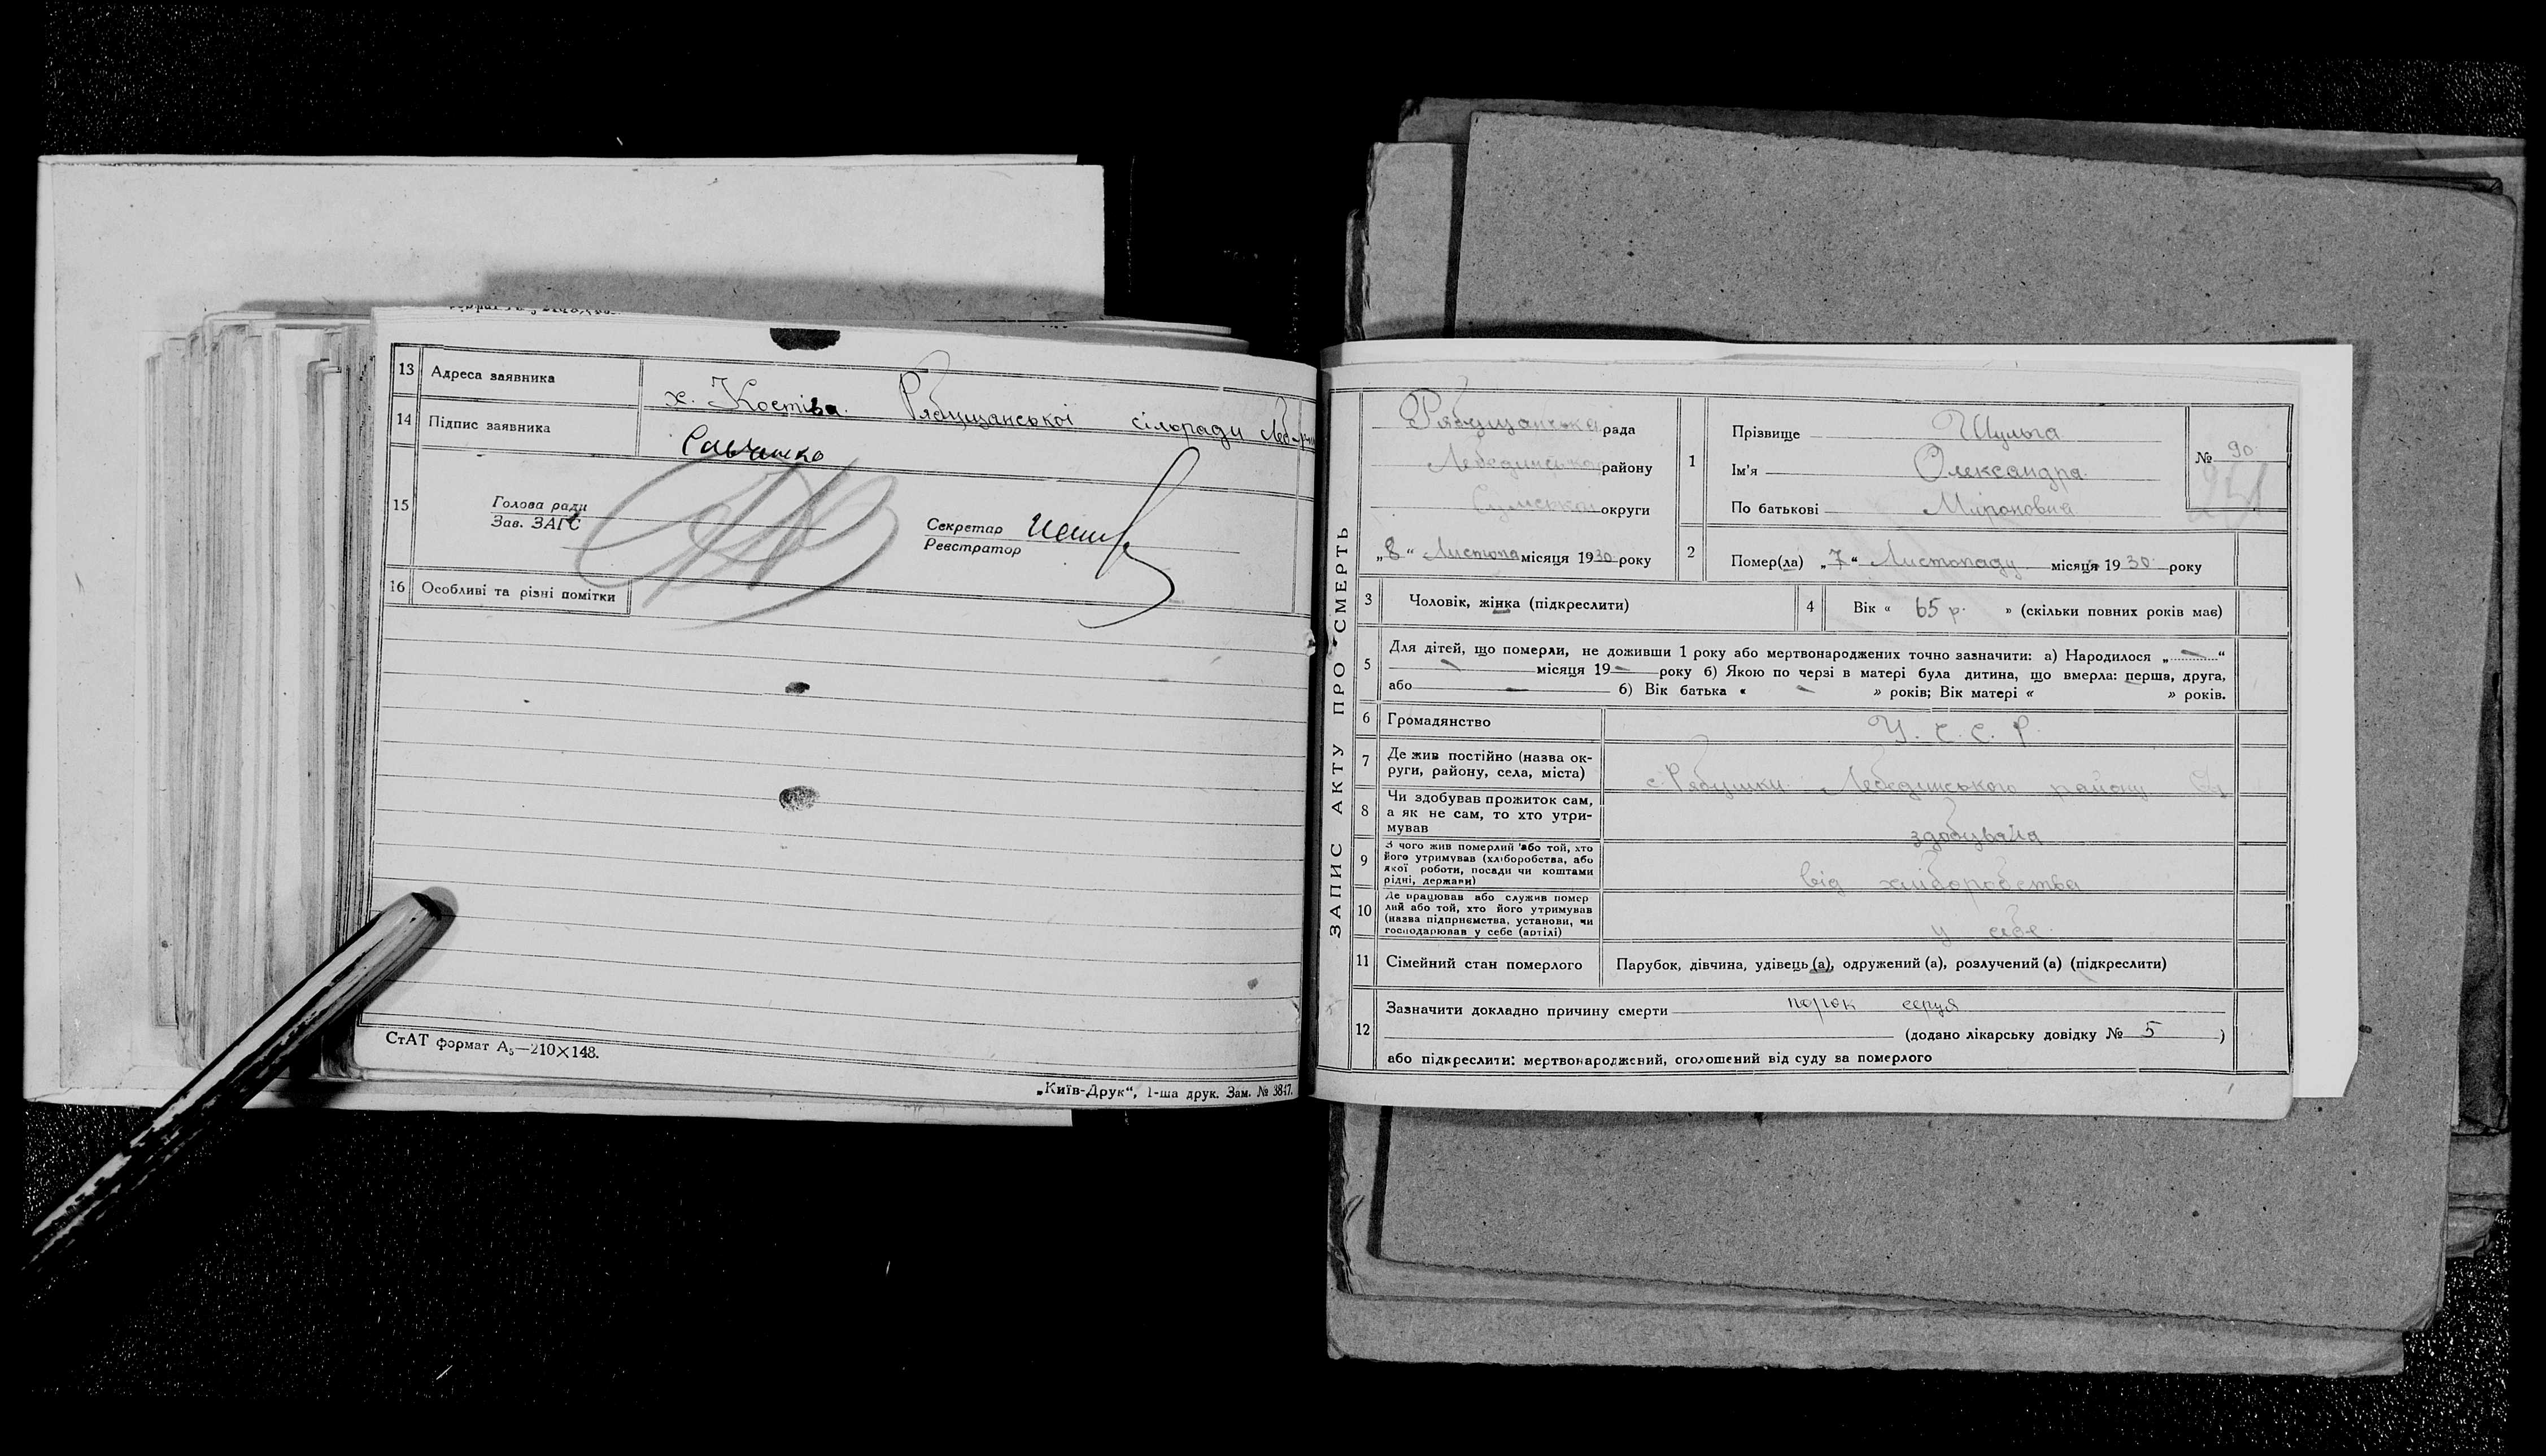 13 Адреса заявника х. Костіва. Рябушанської сільради
14 Підпис заявника Савченко
15 Голова ради
Зав. ЗАГС
Секретар
Реєстратор
16 Особливі та різні помітки
СтАТ формат А₅—210×148.
„Київ-Друк“, 1-ша друк. Зам. № 3847.
ЗАПИС АКТУ ПРО СМЕРТЬ
Рябушанська рада
Лебединського району
Сумської округи
„8“ Листопа місяця 1930 року
1 Прізвище Шульга
Ім'я Олександра
По батькові Мироновна
№ 90
2 Помер(ла) „7“ Листопаду місяця 1930 року
3 Чоловік, жінка (підкреслити)
4 Вік « 65 р. » (скільки повних років має)
5 Для дітей, що померли, не доживши 1 року або мертвонароджених точно зазначити: а) Народилося „ “
місяця 19 — року б) Якою по черзі в матері була дитина, що вмерла: перша, друга,
або — б) Вік батька « — » років; Вік матері « » років.
6 Громадянство У. С. С. Р.
7 Де жив постійно (назва округи, району, села, міста) с. Рябушки Лебединського району
8 Чи здобував прожиток сам, а як не сам, то хто утримував здобувала
9 З чого жив померлий або той, хто його утримував (хліборобства, або якої роботи, посади чи коштами рідні, держави) від хліборобства
10 Де працював або служив померлий або той, хто його утримував (назва підприємства, установи, чи господарював у себе (артілі) у себе
11 Сімейний стан померлого Парубок, дівчина, удівець (а), одружений (а), розлучений (а) (підкреслити)
12 Зазначити докладно причину смерти порок серця
(додано лікарську довідку № 5 )
або підкреслити: мертвонароджений, оголошений від суду за померлого